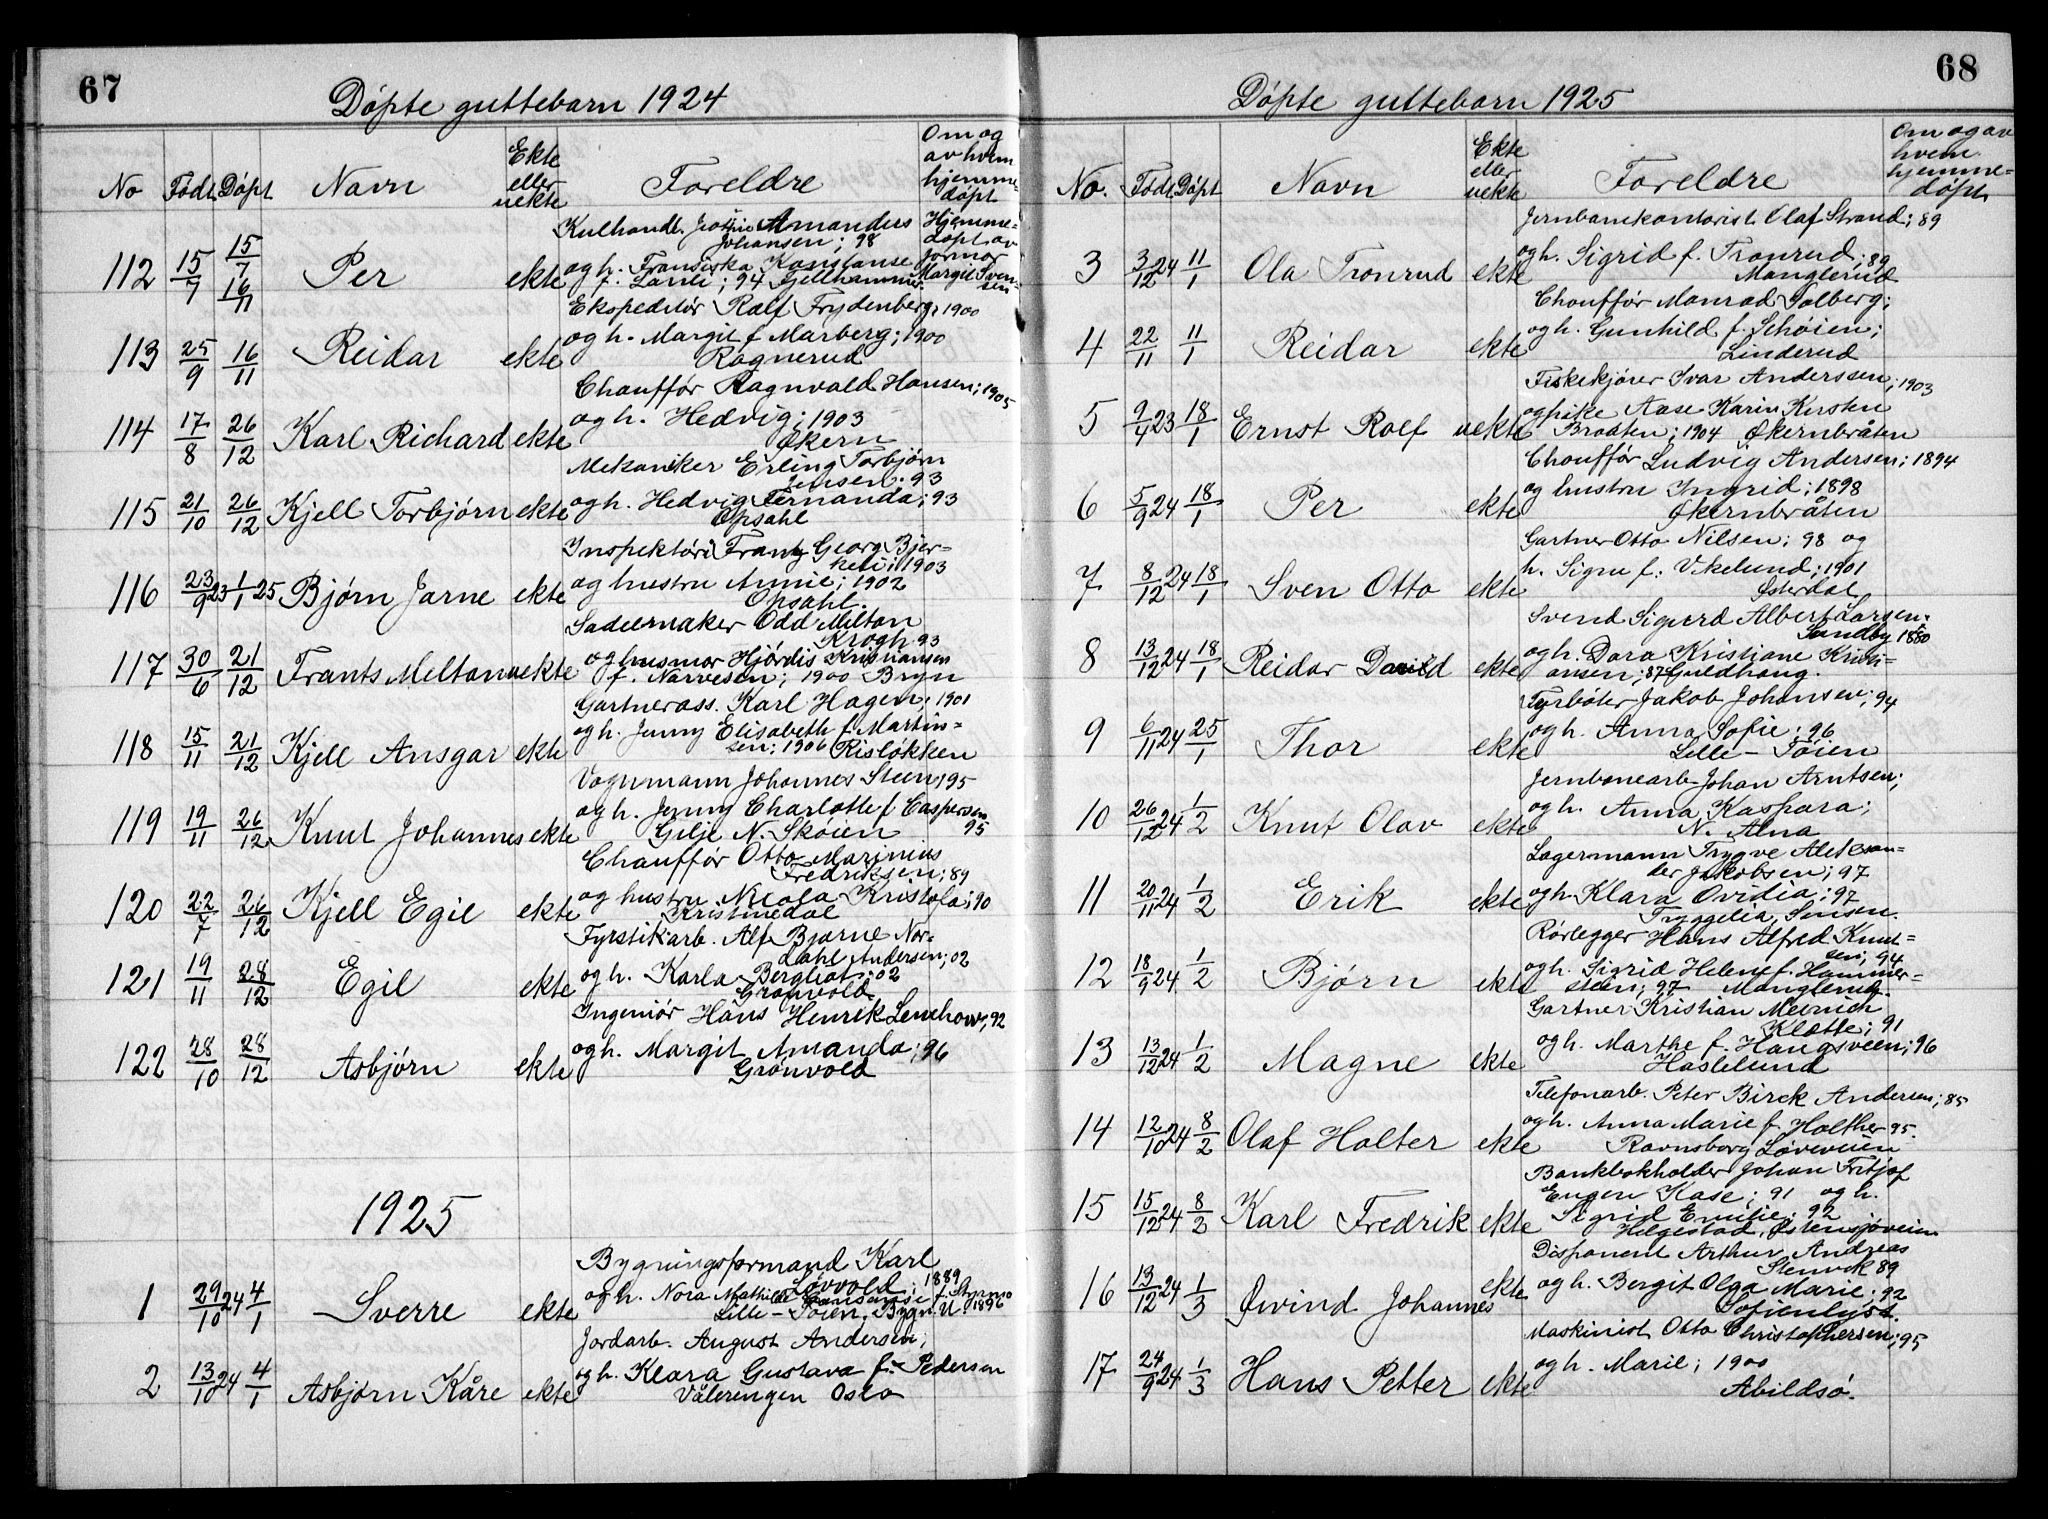 67
Døpte guttebarn 1924
No Født Døpt Navn Ekte eller uekte Foreldre Om og av hvem hjemmedøpt
112 15/7 15/7 16/11 Per ekte
Kulhandl. Amandus
Johansen; 98
og h. Fransiska Konstanse
f. 94 Fjellhammer
Hjemme-
døpt av
formor
Margit Sven-
sen
113 25/9 16/11 Reidar ekte
Ekspeditør Rolf Frydenberg; 1900
og h. Margit f. Marberg; 1900
Rognerud
114 17/8 26/12 Karl Richard ekte
Chauffør Ragnvald Hansen; 1905
og h. Hedvig; 1903
Økern
115 21/10 26/12 Kjell Torbjørn ekte
Mekaniker Erling Torbjørn
Jensen; 93
og h. Hedvig Fernanda; 93
Opsahl
116 23/9 23 1/1 25 Bjørn Jarne ekte
Inspektør Frantz Georg Bjer-
1903
og hustru Annie; 1902
Opsahl.
117 30/6 21/12 Frants Melton uekte
Sadelmaker Odd Milton
Krogh 93
og husmor Hjördis Kristiansen
f. Narvesen; 1900 Bryn
118 15/11 21/12 Kjell Ansgar ekte
Gartnerass. Karl Hagen; 1901
og h. Jenny Elisabeth f. Martin-
sen; 1906 Risløkken
119 19/11 26/12 Knut Johannes ekte
Vognmann Johannes Steen; 95
og h. Jenny Charlotte f. Caspersen
95
Gilje N. Skøien
120 22/7 26/12 Kjell Egil ekte
Chauffør Otto Marinius
Fredriksen; 89
og hustru Nicola Kristofa; 90
Kristinedal
121 19/11 28/12 Egil ekte
Fyrstikarb. Alf Bjarne Nor-
dahl Andersen; 02
og h. Karla Bergliot; 02
Grønvold
122 28/10 28/12 Asbjørn ekte
Ingeniør Hans Henrik Lenchow; 92
og h. Margit Amanda; 96
Grønvold
1925
1 29/10 24 4/1 Sverre ekte
Bygningsformand Karl
Løvvold; 1889
og h. Nora Mathilde
1896
Lille-Tøien,
2 13/10 24 4/1 Asbjørn Kåre ekte
Jordarb. August Andersen;
og h. Klara Gustava f. Pedersen
Vålerengen Oslo
68
Døpte guttebarn 1925
No. Født Døpt Navn Ekte eller uekte Foreldre Om og av hvem hjemme-døpt
3 3/12 24 11/1 Ola Tronrud ekte
Jernbanekontorist Olaf Strand; 89
og h. Sigrid f. Tronrud; 89
Manglerud
4 22/11 11/1 Reidar ekte
Chauffør Monrad Solberg;
og h. Gunhild f. Schøien;
Linderud
5 9/4 23 18/1 Ernst Rolf uekte
Fiskekjører Ivar Anderssen; 1903
og pike Aase Karin Kirsten
Braaten; 1904 Økernbråten
6 5/9 24 18/1 Per ekte
Chauffør Ludvig Andersen; 1894
og hustru Ingrid; 1898
Økernbråten
7 8/12 24 18/1 Sven Otto ekte
Gartner Otto Nilsen; 98 og
h. Signe f. Vikelund; 1901
Østerdal
8 13/12 24 18/1 Reidar David ekte
Svend Sigurd Albert Larsen-
Sundby 1880
og h. Dora Kristiane Kristi-
ansen; 87 Guldhaug.
9 6/11 24 25/1 Thor ekte
Fyrbøter Jakob Johansen; 94
og h. Anna Sofie; 96
Lille-Tøien
10 26/12 24 1/2 Knut Olav ekte
Jernbanearb. Johan Arntsen;
og h. Anna Kaspara;
N. Alna
11 20/11 24 1/2 Erik ekte
Lagermann Trygve Aleksan-
der Jakobsen; 97
og h. Klara Ovidia; 97
Tryggelia, Sinsen.
12 18/9 24 1/2 Bjørn ekte
Rørlegger Hans Alfred Knut-
sen; 94
og h. Sigrid Helene f. Hammer-
steen; 97 Manglerud.
13 13/12 24 1/2 Magne ekte
Gartner Kristian Meinich
Kløtte; 91
og h. Marthe f. Haugsveen; 96
Haslelund
14 12/10 24 8/2 Olaf Holter ekte
Telefonarb. Peter Birck Andersen; 85
og h. Anna Marie f. Holther 95.
Ravnsborg Løveveien
15 15/12 24 8/3 Karl Fredrik ekte
Bankbokholder Johan Fritjof
Eugen Kase; 91 og h.
Sigrid Emilie; 92
Helgestad, Østensjøveien
16 13/12 24 1/3 Øivind Johannes ekte
Disponent Arthur Andreas
Stenvik 89
og h. Bergit Olga Marie; 92
Sofienlyst.
17 24/9 24 1/3 Hans Petter ekte
Maskinist Otto Christophersen; 95
og h. Marie; 1900
Abildsø.